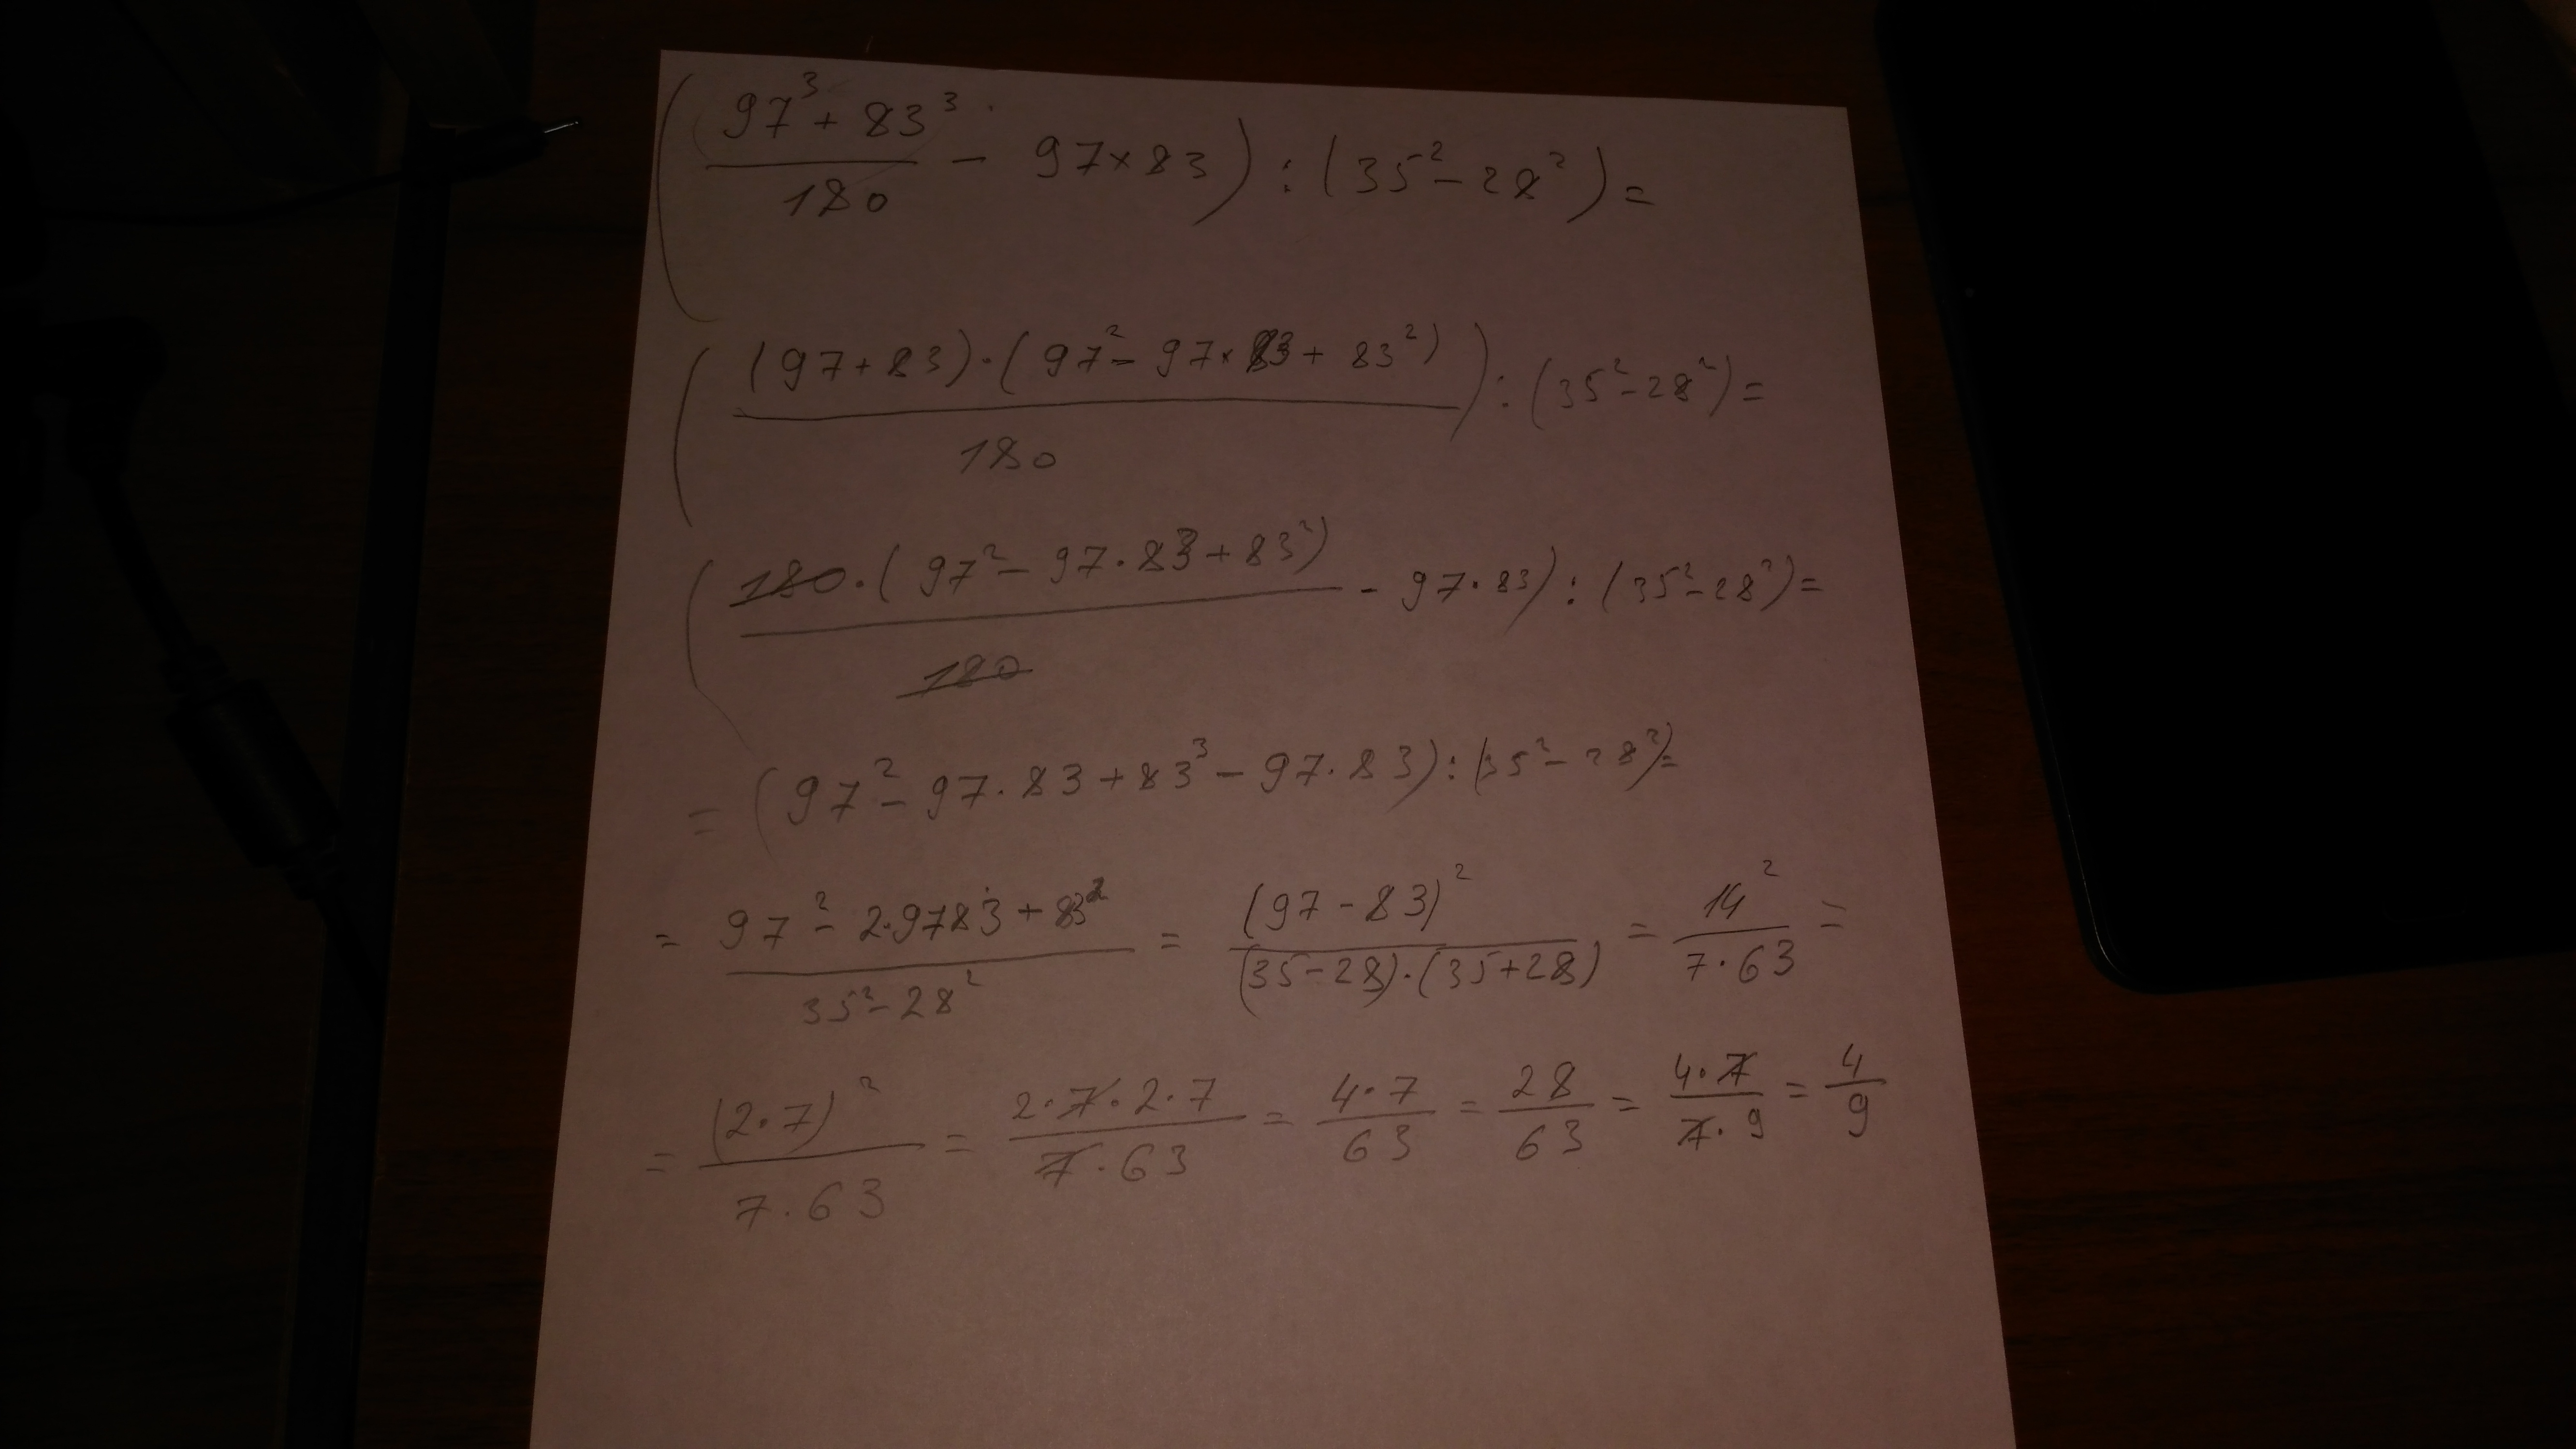 ( (97³ + 83³) / 180 − 97 × 83 ) : (35² − 28²) =
( (97 + 83) · (97² − 97 × 83 + 83²) / 180 ) : (35² − 28²) =
( 180 · (97² − 97 · 83 + 83²) / 180 − 97 · 83 ) : (35² − 28²) =
= (97² − 97 · 83 + 83³ − 97 · 83) : (35² − 28²) =
= (97² − 2·9783 + 83²) / (35² − 28²) = (97 − 83)² / (35 − 28) · (35 + 28) = 14² / 7 · 63 =
= (2 · 7)² / 7 · 63 = 2 · 7 · 2 · 7 / 7 · 63 = 4 · 7 / 63 = 28 / 63 = 4 · 7 / 7 · 9 = 4 / 9